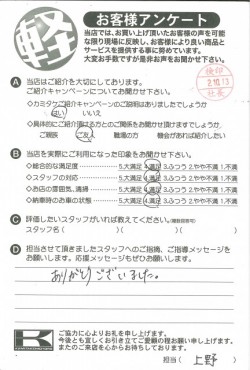 軽
お客様アンケート
当店では、お買い上げ頂いたお客様の声を可能
な限り現場に反映し、お客様により良い商品と
サービスを提供する事に努めています。
大変お手数ですが是非お声をお聞かせ下さい。
A 当店はご紹介を大切にしております。
ご紹介キャンペーンについてお聞かせ下さい。
◇カミタケご紹介キャンペーンのご説明はありましたでしょうか
はい いいえ
◇具体的にご紹介頂ける方とのご関係をお聞かせ頂けますでしょうか
ご親族 ご友人 職場の方 機会があれば紹介したい
B 当店を実際にご利用になられた印象をお聞かせ下さい。
◇総合的な満足度 5.大満足 4.満足 3.ふつう 2.やや不満 1.不満
◇スタッフの対応 5.大満足 4.満足 3.ふつう 2.やや不満 1.不満
◇お店の雰囲気、清掃 5.大満足 4.満足 3.ふつう 2.やや不満 1.不満
◇納車時のお車の状態 5.大満足 4.満足 3.ふつう 2.やや不満 1.不満
C 評価したいスタッフがいれば教えてください。(複数回答可)
スタッフ名( )( )( )
D 担当させて頂きましたスタッフへのご指摘、ご指導メッセージを
お願いします。応援メッセージもぜひお願いします。
ありがとうございました。
K
ご協力に心よりお礼を申し上げます。
今後とも宜しくお引き立てご愛顧の程お願い申し上げます。
またのご来店を心からお待ちしております。
担当( 上野 )